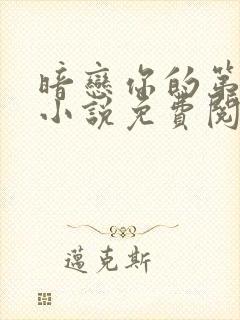 暗戀你的第
小說免費閱
邁克斯